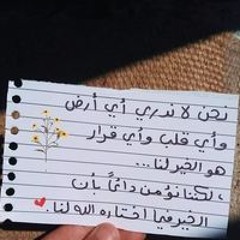 نحن لا ندري أي أرض
وأي قلب وأي قرار
هو الخير لنا...
، لكننا نؤمن دائماً بأن
الخير فيما اختاره الله لنا.